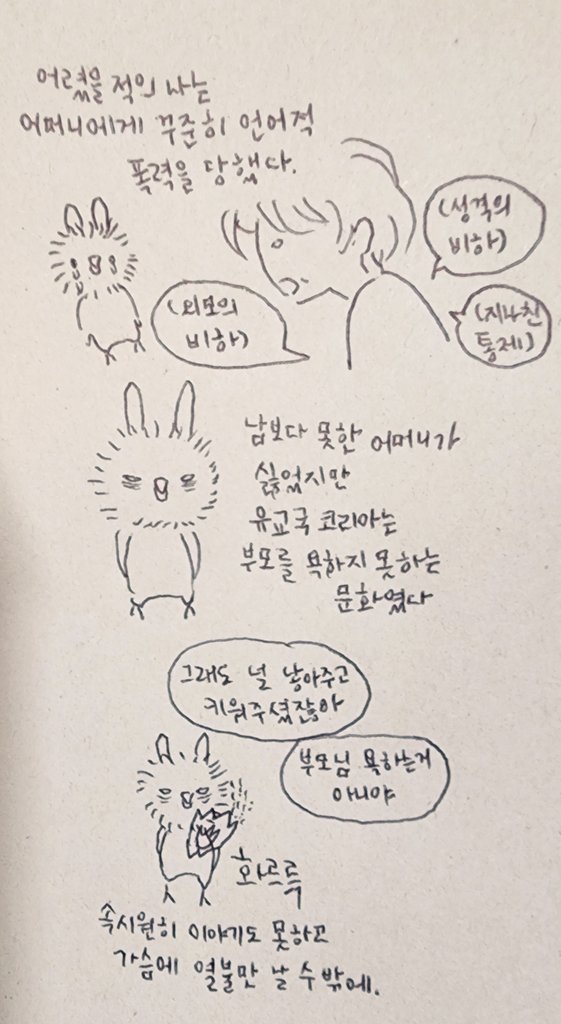 어렸을 적의 나는
어머니에게 꾸준히 언어적
폭력을 당했다.
(성격의
비하)
(외모의
비하)
(지나친
통제)
남보다 못한 어머니가
싫었지만
유교국 코리아는
부모를 욕하지 못하는
문화였다
그래도 널 낳아주고
키워주셨잖아
부모님 욕하는거
아니야
화르륵
속시원히 이야기도 못하고
가슴에 열불만 날 수 밖에.